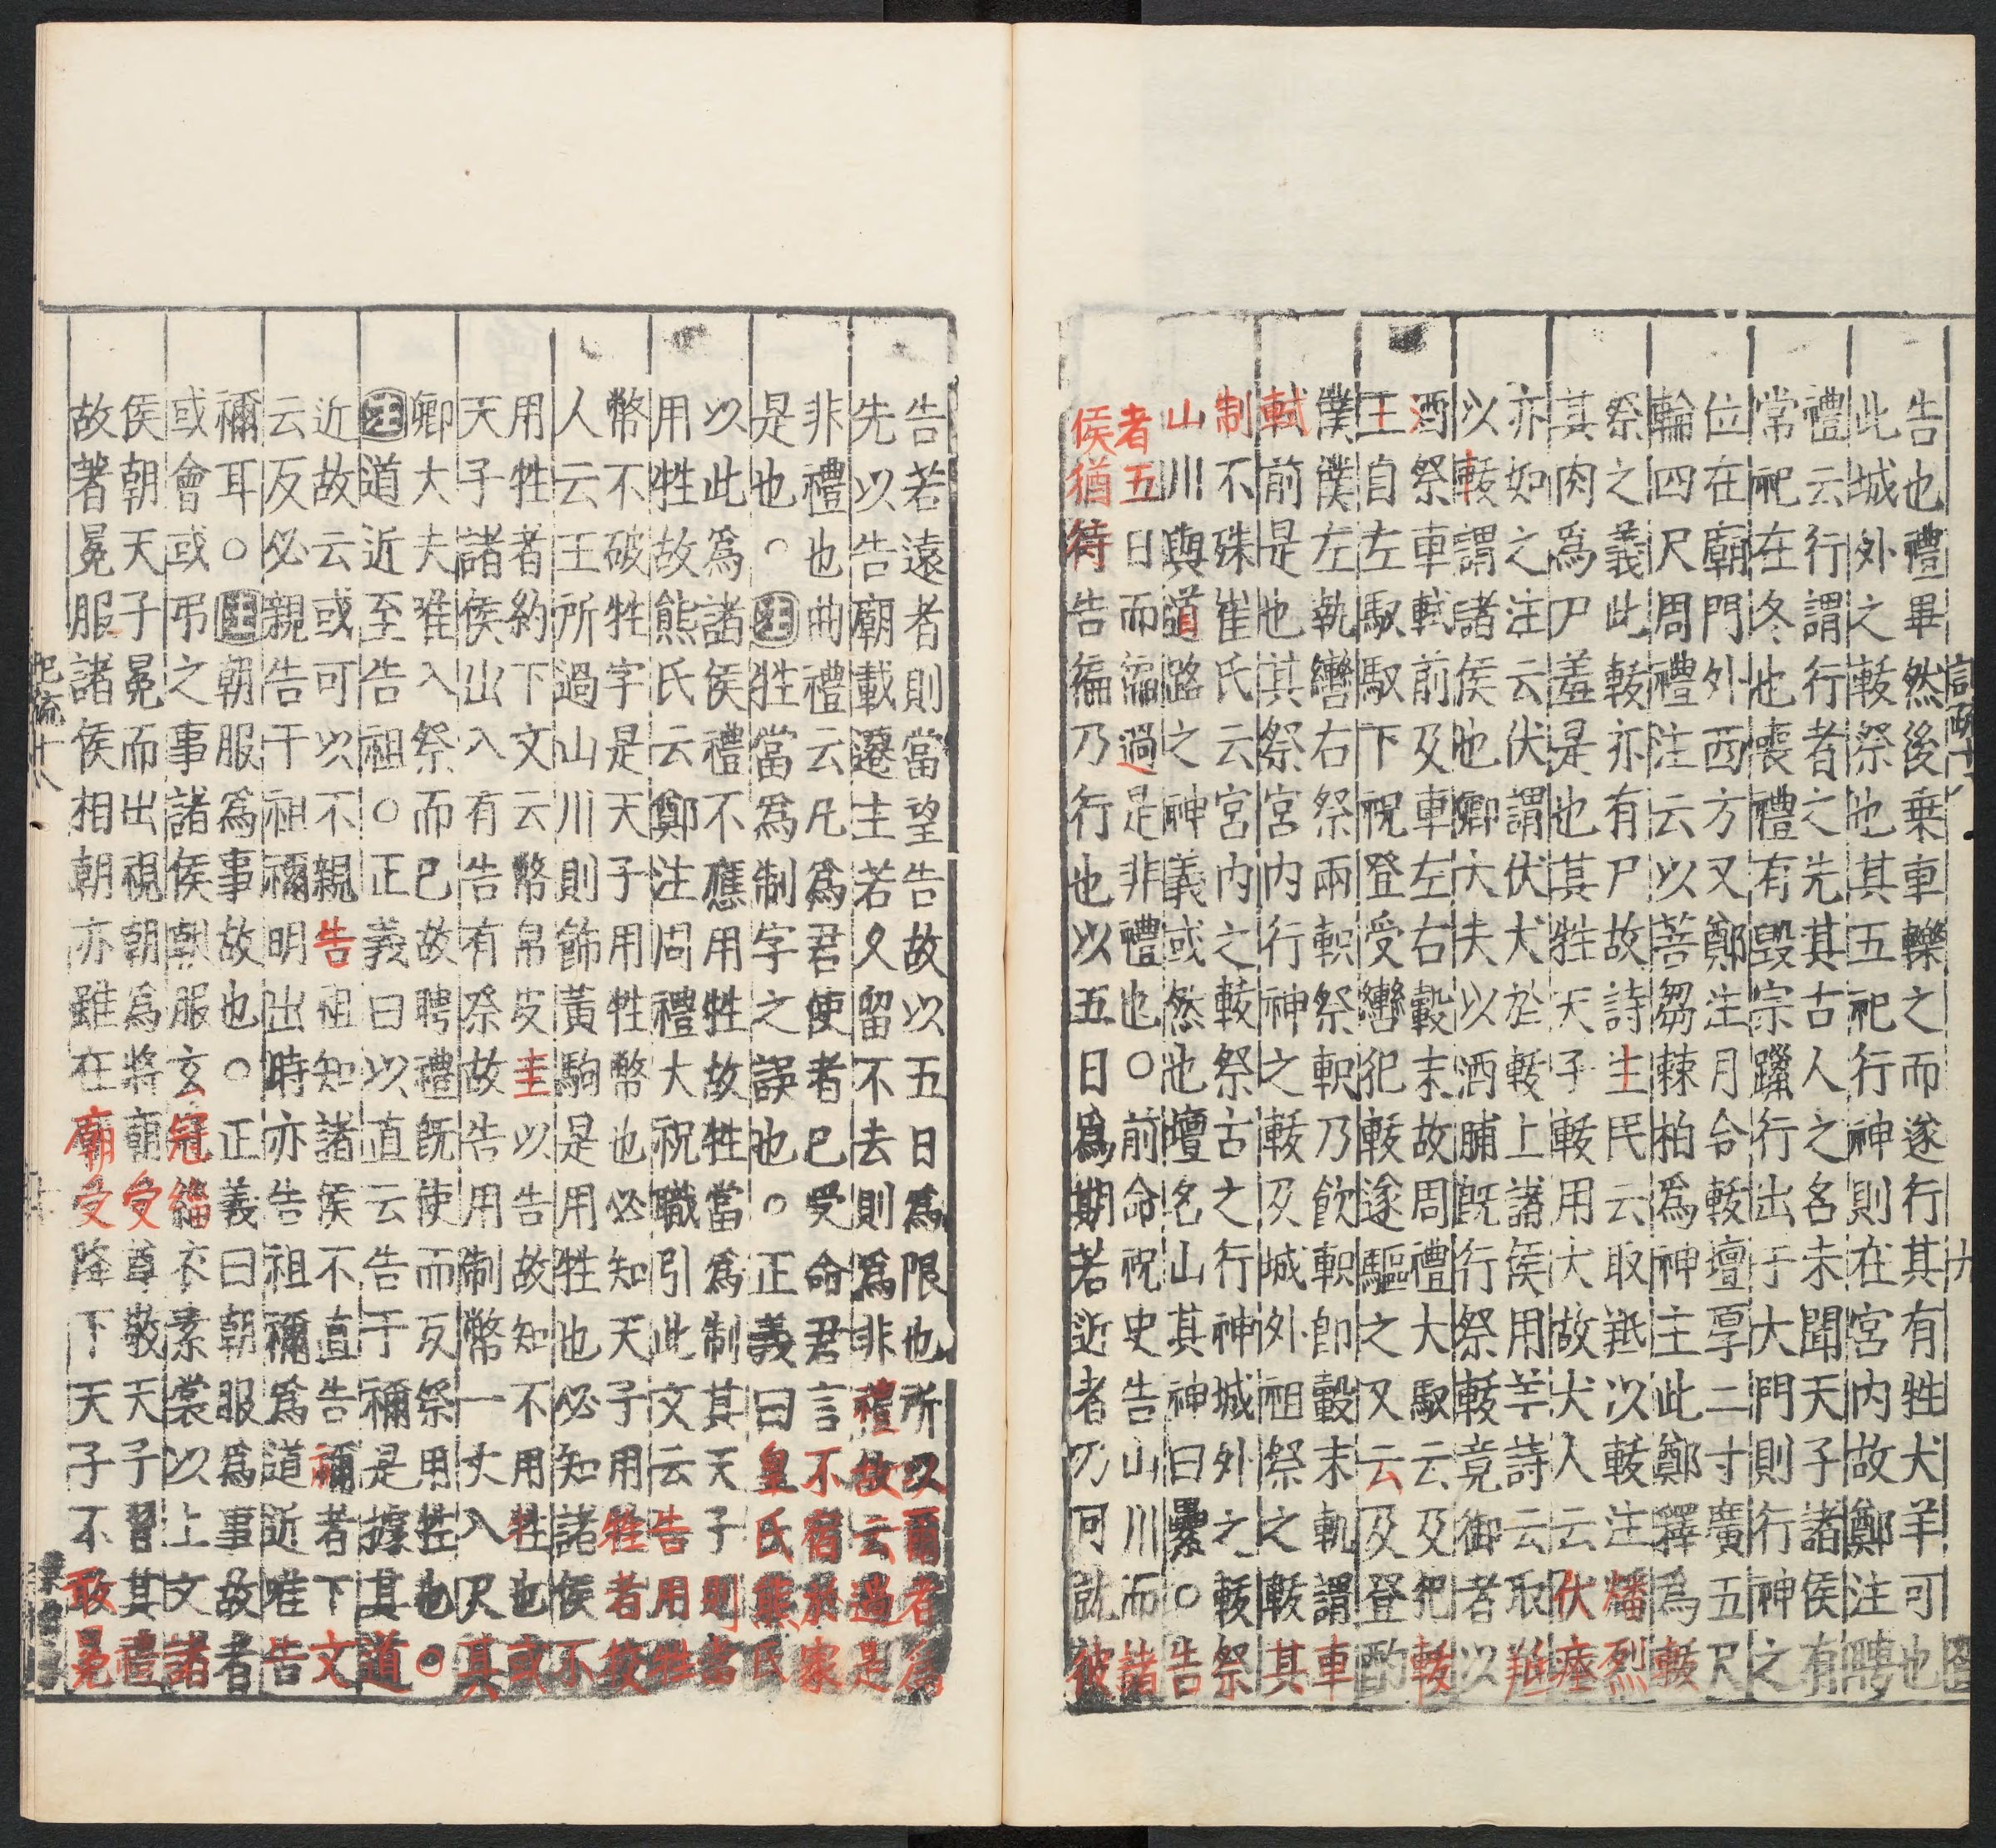 告也禮畢然後乗車轢之而遂行其有牲犬羊可也
此城外之軷祭也其五祀行神則在宮内故鄭注聘
禮云行謂行者之先其古人之名未聞天子諸侯有
常祀在冬也喪禮有毀宗躐行出于大門則行神之
位在廟門外西方又鄭注月令軷壇厚二寸廣五尺
輪四尺周禮注云以菩芻棘柏爲神主此鄭釋爲軷
祭之義此軷亦有尸故詩生民云取羝以軷注燔烈
其肉爲尸羞是也其牲天子軷用犬故犬人云伏瘞
亦如之注云伏謂伏犬於軷上諸侯用羊詩云取羝
以軷謂諸侯也卿大夫以酒脯既行祭軷竟御者以
酒祭車軾前及車左右轂末故周禮大馭云及犯軷
王自左馭馭下祝登受轡犯軷遂驅之又云及登酌
僕僕左執轡右祭兩軹祭軌乃飲軹即轂末軌謂車
軾前是也其祭宮内行神之軷及城外祖祭之軷其
制不殊崔氏云宮内之軷祭古之行神城外之軷祭
山川與道路之神義或然也壇名山其神曰纍○告
者五日而徧過是非禮也○前命祝史告山川而諸
侯猶待告徧乃行也以五日爲期若近者乃可就彼
告若遠者則當望告故以五日爲限也所以爾者爲
先以告廟載遷主若久留不去則爲非禮故云過是
非禮也曲禮云凡爲君使者已受命君言不宿於家
是也○注牲當爲制字之誤也○正義曰皇氏熊氏
以此爲諸侯禮不應用牲故牲當爲制其天子則當
用牲故熊氏云鄭注周禮大祝職引此文云告用牲
幣不破牲字是天子用牲幣也必知天子用牲者校
人云王所過山川則飾黃駒是用牲也必知諸侯不
用牲者約下文云幣帛皮圭以告故知不用牲也或
天子諸侯出入有告有祭故告用制幣一丈八尺其
卿大夫唯入祭而已故聘禮既使而反祭用牲也○
注道近至告祖○正義曰以直云告于禰是據其道
近故云或可以不親告祖知諸侯不直告禰者下文
云反必親告于祖禰明出時亦告祖禰爲道近唯告
禰耳○注朝服爲事故也○正義曰朝服爲事故者
或會或弔之事諸侯朝服玄冠緇衣素裳以上文諸
侯朝天子冕而出視朝爲將廟受尊敬天子習其禮
故著冕服諸侯相朝亦雖在廟受降下天子不敢冕
記疏十八